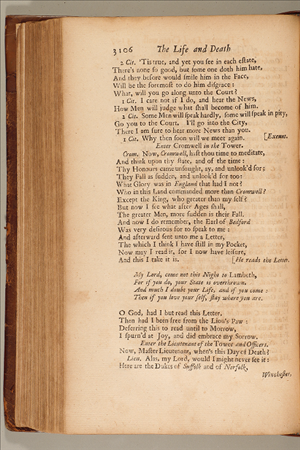 3106 The Life and Death
2 Cit. 'Tis true, and yet you see in each estate,
There's none so good, but some one doth him hate,
And they before would smile him in the Face,
Will be the foremost to do him disgrace:
What, will you go along unto the Court?
1 Cit. I care not if I do, and hear the News,
How Men will judge what shall become of him.
2 Cit. Some Men will speak hardly, some will speak in pity,
Go you to the Court. I'll go into the City,
There I am sure to hear more News than you.
1 Cit. Why then soon will we meet again. [Exeunt.
Enter Cromwell in the Tower.
Crom. Now, Cromwell, hast thou time to meditate,
And think upon thy state, and of the time:
Thy Honours came unsought, ay, and unlook'd for;
They fall as sudden, and unlook'd for too:
What Glory was in England that had I not?
Who in this Land commanded more than Cromwell?
Except the King, who greater than my self?
But now I see what after Ages shall,
The greater Men, more sudden is their Fall.
And now I do remember, the Earl of Bedford
Was very desirous for to speak to me:
And afterward sent unto me a Letter,
The which I think I have still in my Pocket,
Now may I read it, for I now have leisure,
And this I take it is. [He reads the Letter.
My Lord, come not this Night to Lambeth,
For if you do, your State is overthrown.
And much I doubt your Life, and if you come:
Then if you love your self, stay where you are.
O God, had I but read this Letter,
Then had I been free from the Lion's Paw:
Deferring this to read until to Morrow,
I spurn'd at Joy, and did embrace my Sorrow.
Enter the Lieutenant of the Tower and Officers.
Now, Master Lieutenant, when's this Day of Death?
Lieu. Alas, my Lord, would I might never see it:
Here are the Dukes of Suffolk and of Norfolk,
Winchester,